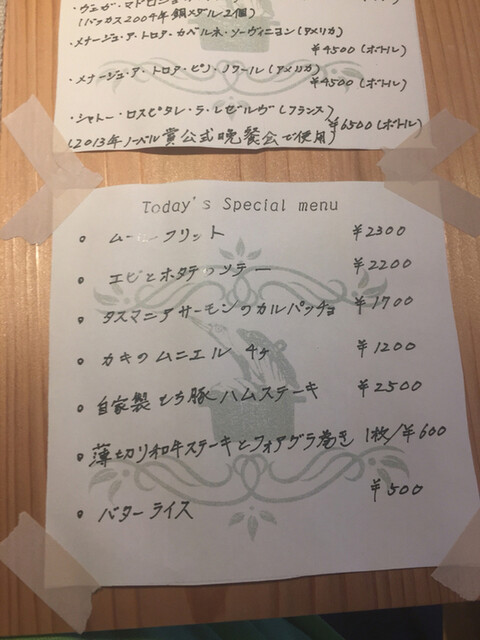 ・ヴェガ・マドロン
(バッカス2004年銅メダル2個)
・メナージュ・ア・トロア・カベルネ・ソーヴィニヨン(アメリカ)
¥4500(ボトル)
・メナージュ・ア・トロア・ピノ・ノワール(アメリカ)
¥4500(ボトル)
・シャトー・ロスピタレ・ラ・レゼルヴ(フランス)
¥6500(ボトル)
(2013年ノーベル賞公式晩餐会で使用)
Today's Special menu
ムールフリット ¥2300
エビとホタテのソテー ¥2200
タスマニアサーモンのカルパッチョ ¥1700
カキのムニエル 4ヶ ¥1200
自家製もち豚ハムステーキ ¥2500
薄切り和牛ステーキとフォアグラ巻き 1枚/¥600
バターライス ¥500